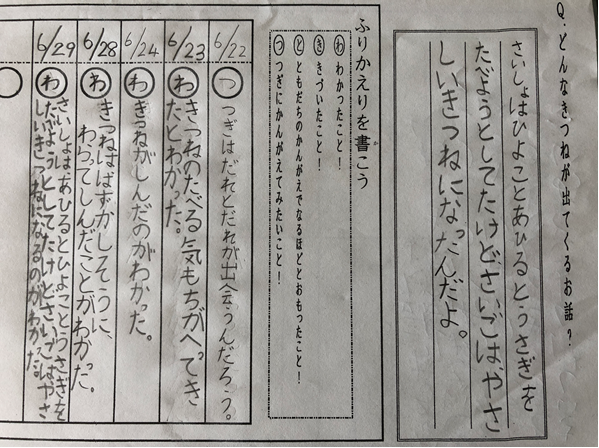 Q．どんなきつねが出てくるお話？
さいしょはひよことあひるとうさぎを
たべようとしてたけどさいごは、やさ
しいきつねになったんだよ。
ふりかえりを書こう
か
わ わかったこと！
き きづいたこと！
と ともだちのかんがえでなるほどとおもったこと！
つ つぎにかんがえてみたいこと！
6/22
つ
つぎはだれとだれが出会うんだろう。
6/23
わ
きつねのたべる気もちがへってき
たとわかった。
6/24
わ
きつねがしんだのがわかった。
6/28
わ
きつねははずかしそうに、
わらってしんだことがわかった。
6/29
わ
さいしょはあひるとひよことうさぎを
たべようとしてたけどさいごはやさ
しいきつねになるのがわかった。